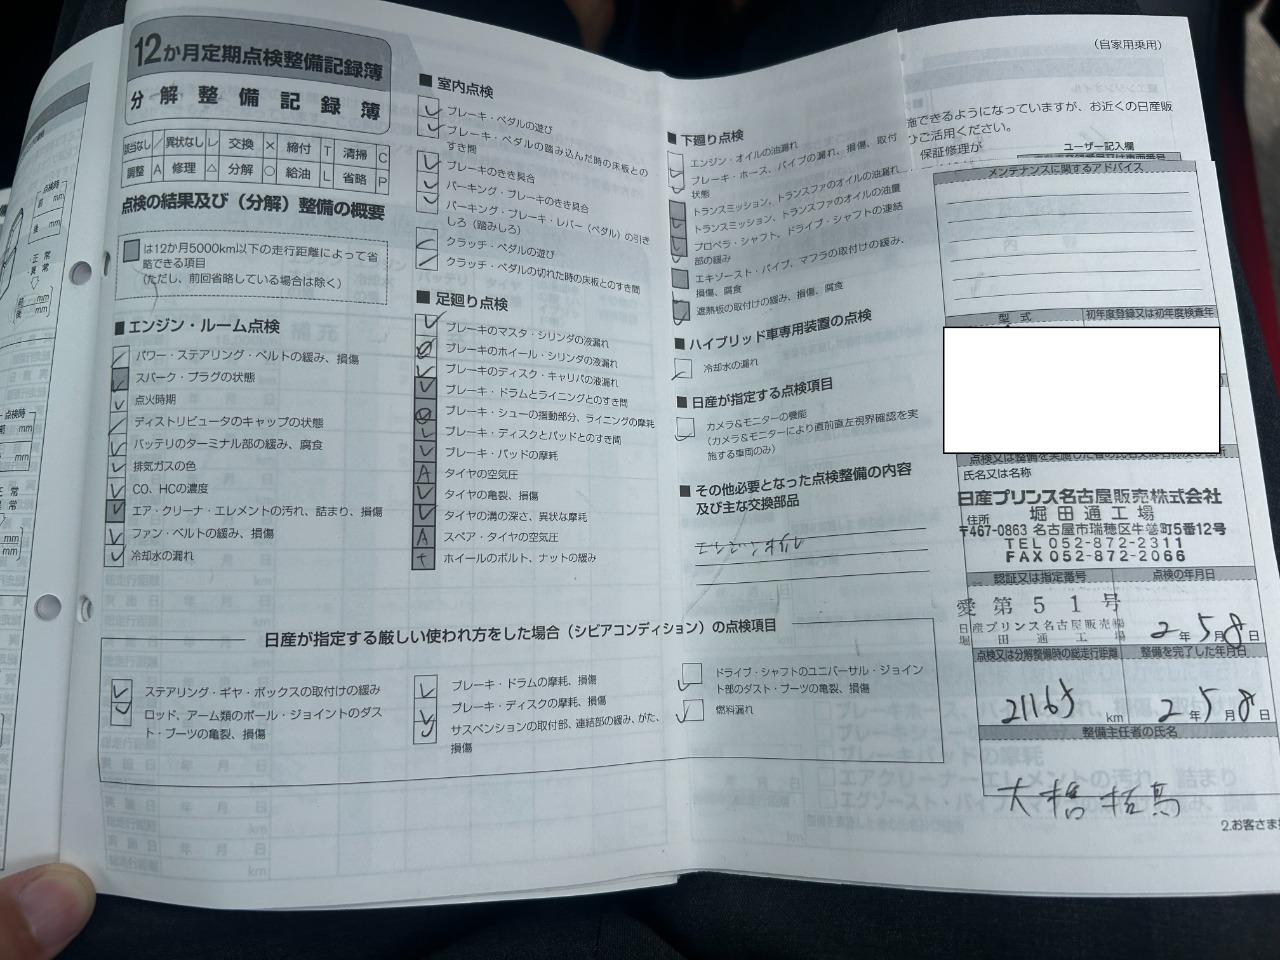 12か月定期点検整備記録簿
分解整備記録簿
該当なし / 異状なし レ 交換 × 締付 T 清掃 C
調整 A 修理 △ 分解 ○ 給油 L 省略 P
点検の結果及び(分解)整備の概要
は12か月5000km以下の走行距離によって省
略できる項目
(ただし、前回省略している場合は除く)
■ エンジン・ルーム点検
パワー・ステアリング・ベルトの緩み、損傷
スパーク・プラグの状態
点火時期
ディストリビュータのキャップの状態
バッテリのターミナル部の緩み、腐食
排気ガスの色
CO、HCの濃度
エア・クリーナ・エレメントの汚れ、詰まり、損傷
ファン・ベルトの緩み、損傷
冷却水の漏れ
■ 室内点検
ブレーキ・ペダルの遊び
ブレーキ・ペダルの踏み込んだ時の床板との
すき間
ブレーキのきき具合
パーキング・ブレーキのきき具合
パーキング・ブレーキ・レバー(ペダル)の引き
しろ(踏みしろ)
クラッチ・ペダルの遊び
クラッチ・ペダルの切れた時の床板とのすき間
■ 足廻り点検
ブレーキのマスタ・シリンダの液漏れ
ブレーキのホイール・シリンダの液漏れ
ブレーキのディスク・キャリパの液漏れ
ブレーキ・ドラムとライニングとのすき間
ブレーキ・シューの摺動部分、ライニングの摩耗
ブレーキ・ディスクとパッドとのすき間
ブレーキ・パッドの摩耗
A タイヤの空気圧
タイヤの亀裂、損傷
タイヤの溝の深さ、異状な摩耗
A スペア・タイヤの空気圧
T ホイールのボルト、ナットの緩み
■ 下廻り点検
エンジン・オイルの油漏れ
ブレーキ・ホース、パイプの漏れ、損傷、取付
状態
トランスミッション、トランスファのオイルの油漏れ
トランスミッション、トランスファのオイルの油量
プロペラ・シャフト、ドライブ・シャフトの連結
部の緩み
エキゾースト・パイプ、マフラの取付けの緩み、
損傷、腐食
遮熱板の取付けの緩み、損傷、腐食
■ ハイブリッド車専用装置の点検
冷却水の漏れ
■ 日産が指定する点検項目
カメラ&モニターの機能
(カメラ&モニターにより直前直左視界確認を実
施する車両のみ)
■ その他必要となった点検整備の内容
及び主な交換部品
エンジンオイル
日産が指定する厳しい使われ方をした場合(シビアコンディション)の点検項目
ステアリング・ギヤ・ボックスの取付けの緩み
ロッド、アーム類のボール・ジョイントのダス
ト・ブーツの亀裂、損傷
ブレーキ・ドラムの摩耗、損傷
ブレーキ・ディスクの摩耗、損傷
サスペンションの取付部、連結部の緩み、がた、
損傷
ドライブ・シャフトのユニバーサル・ジョイン
ト部のダスト・ブーツの亀裂、損傷
燃料漏れ
(自家用乗用)
施できるようになっていますが、お近くの日産販
ご活用ください。
保証修理が
ユーザー記入欄
メンテナンスに関するアドバイス
型式 初年度登録又は初年度検査年
氏名又は名称
日産プリンス名古屋販売株式会社
堀田通工場
住所
〒467-0863 名古屋市瑞穂区牛巻町5番12号
TEL 052-872-2311
FAX 052-872-2066
認証又は指定番号 点検の年月日
愛第51号
日産プリンス名古屋販売㈱
堀田通工場
2年5月8日
点検又は分解整備時の総走行距離 整備を完了した年月日
21165 km 2年5月8日
整備主任者の氏名
2.お客さま